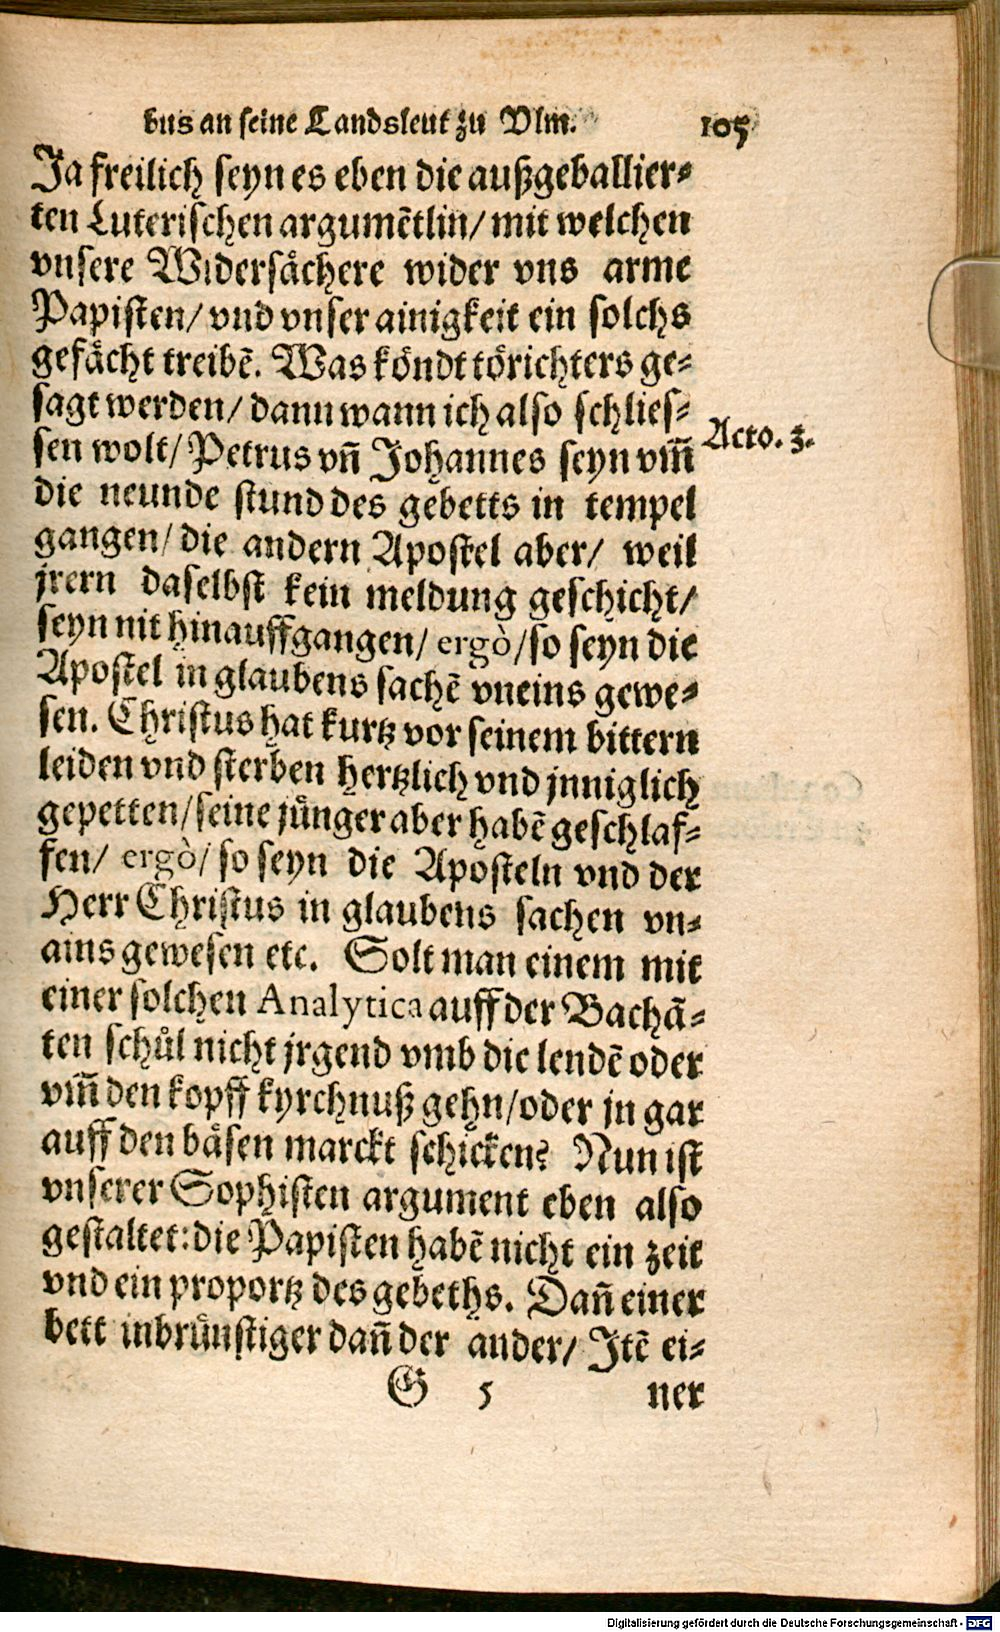 bus an seine Landsleut zu Vlm. 105
Ja freilich seyn es eben die außgeballier⸗
ten Luterischen argumẽtlin/ mit welchen
vnsere Widersaͤchere wider vns arme
Papisten/ vnd vnser ainigkeit ein solchs
gefaͤcht treibẽ. Was koͤndt toͤrichters ge⸗
sagt werden/ dann wann ich also schlies⸗
sen wolt/ Petrus vñ Johannes seyn vm̃
Acto. 3.
die neunde stund des gebetts in tempel
gangen/ die andern Apostel aber/ weil
jrern daselbst kein meldung geschicht/
seyn nit hinauffgangen/ ergò/ so seyn die
Apostel in glaubens sachẽ vneins gewe⸗
sen. Christus hat kurtz vor seinem bittern
leiden vnd sterben hertzlich vnd jnniglich
gepetten/ seine juͤnger aber habẽ geschlaf⸗
fen/ ergò/ so seyn die Aposteln vnd der
Herr Christus in glaubens sachen vn⸗
ains gewesen etc. Solt man einem mit
einer solchen Analytica auff der Bachã⸗
ten schuͦl nicht jrgend vmb die lendẽ oder
vm̃ den kopff kyrchnuß gehn/ oder jn gar
auff den baͤsen marckt schicken? Nun ist
vnserer Sophisten argument eben also
gestaltet: die Papisten habẽ nicht ein zeit
vnd ein proportz des gebeths. Dañ einer
bett inbruͤnstiger dañ der ander/ Itẽ ei⸗
G 5 ner
Digitalisierung gefördert durch die Deutsche Forschungsgemeinschaft - DFG